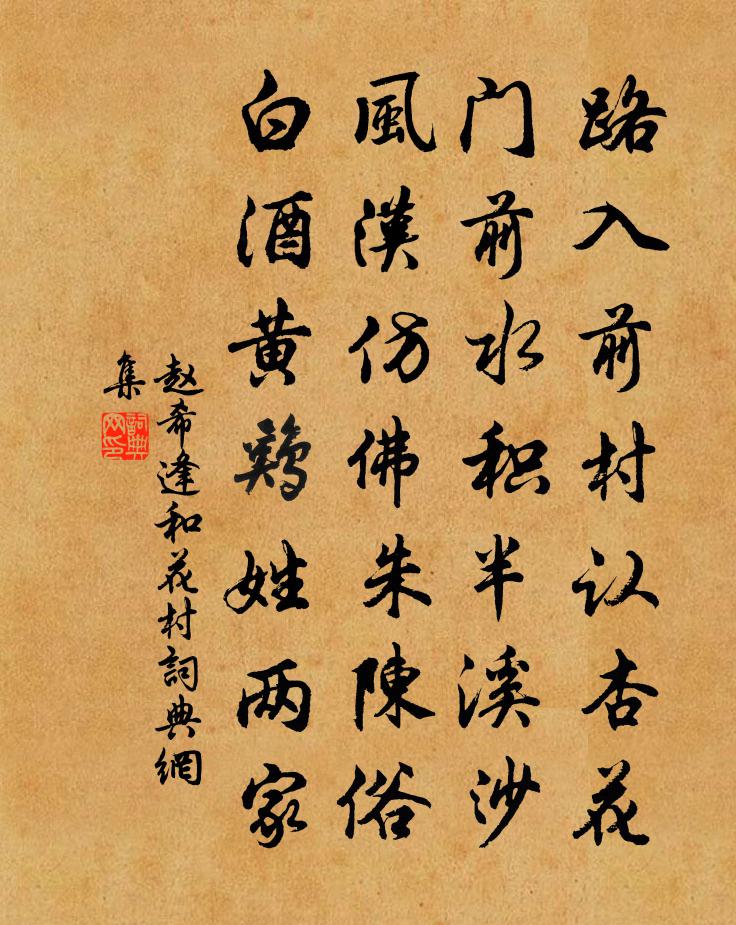 路入前村认杏花
门前水积半溪沙
風漢仿佛朱陳俗
白酒黄鷄姓两家
赵希逢和花村詞典網
集
詞典
网印